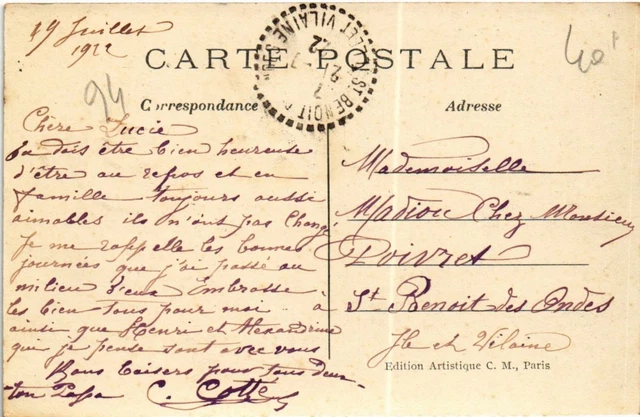 19 Juillet
1922
CARTE POSTALE
94
40f
Correspondance
Adresse
Chère Lucie
tu dois être bien heureuse
d'être au repos et en
famille toujours aussi
aimables ils n'ont pas changé
Je me rappelle les bonnes
journées que j'ai passé au
milieu d'eux Embrasse
les bien tous pour moi
ainsi que Henri et Alexandrine
qui je pense sont avec vous
Bons baisers pour tous deux
ton Papa C. Cotté
Mademoiselle
Madiou Chez Monsieur
Poivret
St Benoit des Ondes
Ile et Vilaine
Edition Artistique C. M., Paris
ST BENOIT
ET VILAINE